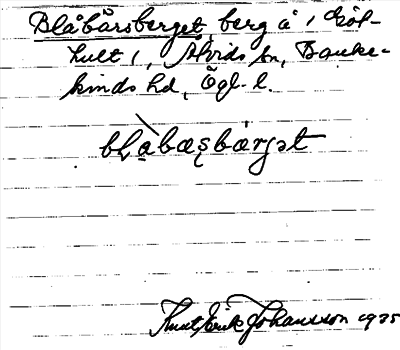 Blåbärsberget, berg å 1 Göt-
hult 1, Alvids sn, Banke-
kinds hd, Ögl. l.
bḷåbæsbærjət
Knut Erik Johansson 1935